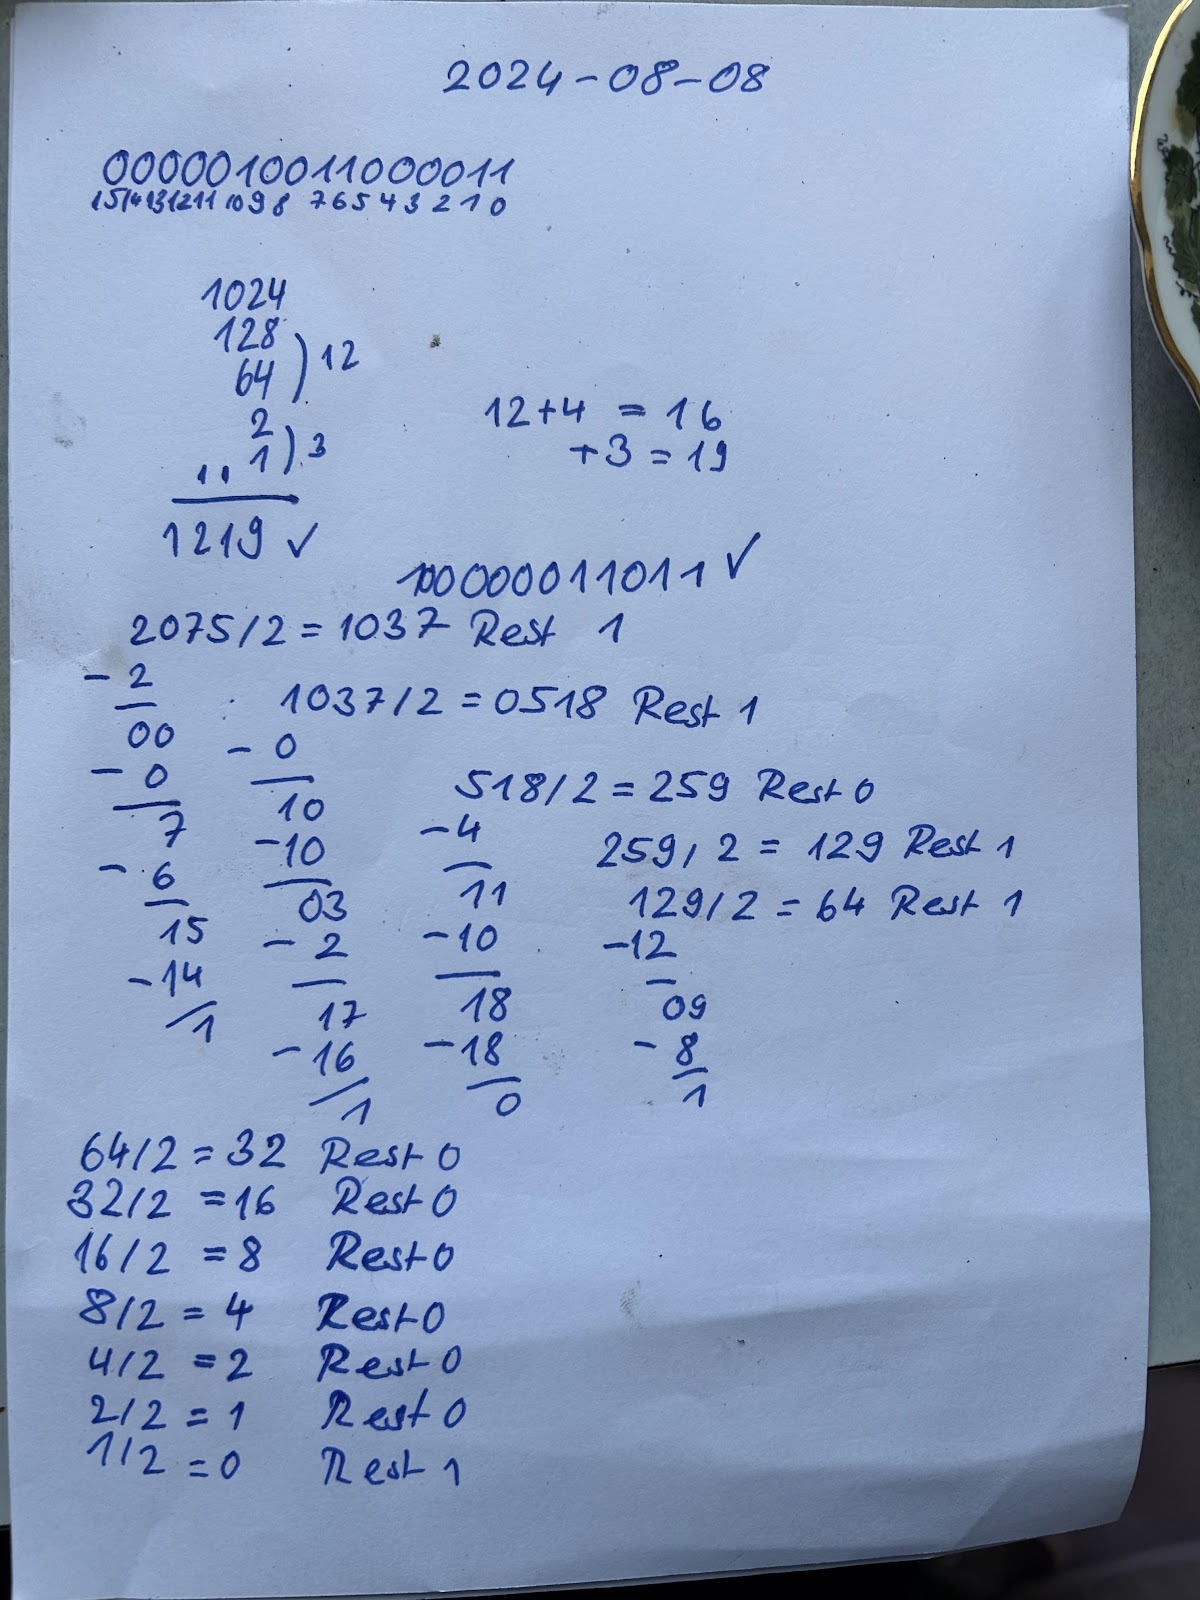 2024-08-08
0000010011000011
1514131211 1098 76543210
1024
128
64 ) 12
2
1 ) 3
1219 ✓
12+4 = 16
+3 = 19
100000011011 ✓
2075/2 = 1037 Rest 1
- 2
00
- 0
7
- 6
15
-14
1
1037/2 = 0518 Rest 1
- 0
10
-10
03
- 2
17
-16
1
518/2 = 259 Rest 0
-4
11
-10
18
-18
0
259/2 = 129 Rest 1
129/2 = 64 Rest 1
-12
09
- 8
1
64/2 = 32 Rest 0
32/2 = 16 Rest 0
16/2 = 8 Rest 0
8/2 = 4 Rest 0
4/2 = 2 Rest 0
2/2 = 1 Rest 0
1/2 = 0 Rest 1